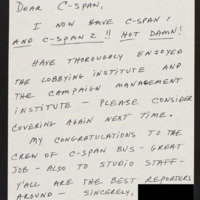 DEAR C-SPAN,
I NOW HAVE C-SPAN 1
AND C-SPAN 2 !! HOT DAMN!
HAVE THOROUGHLY ENJOYED
THE LOBBYING INSTITUTE AND
THE CAMPAIGN MANAGEMENT
INSTITUTE - PLEASE CONSIDER
COVERING AGAIN NEXT TIME.
MY CONGRATULATIONS TO THE
CREW OF C-SPAN BUS - GREAT
JOB - ALSO TO STUDIO STAFF -
Y'ALL ARE THE BEST REPORTERS
AROUND - SINCERELY,